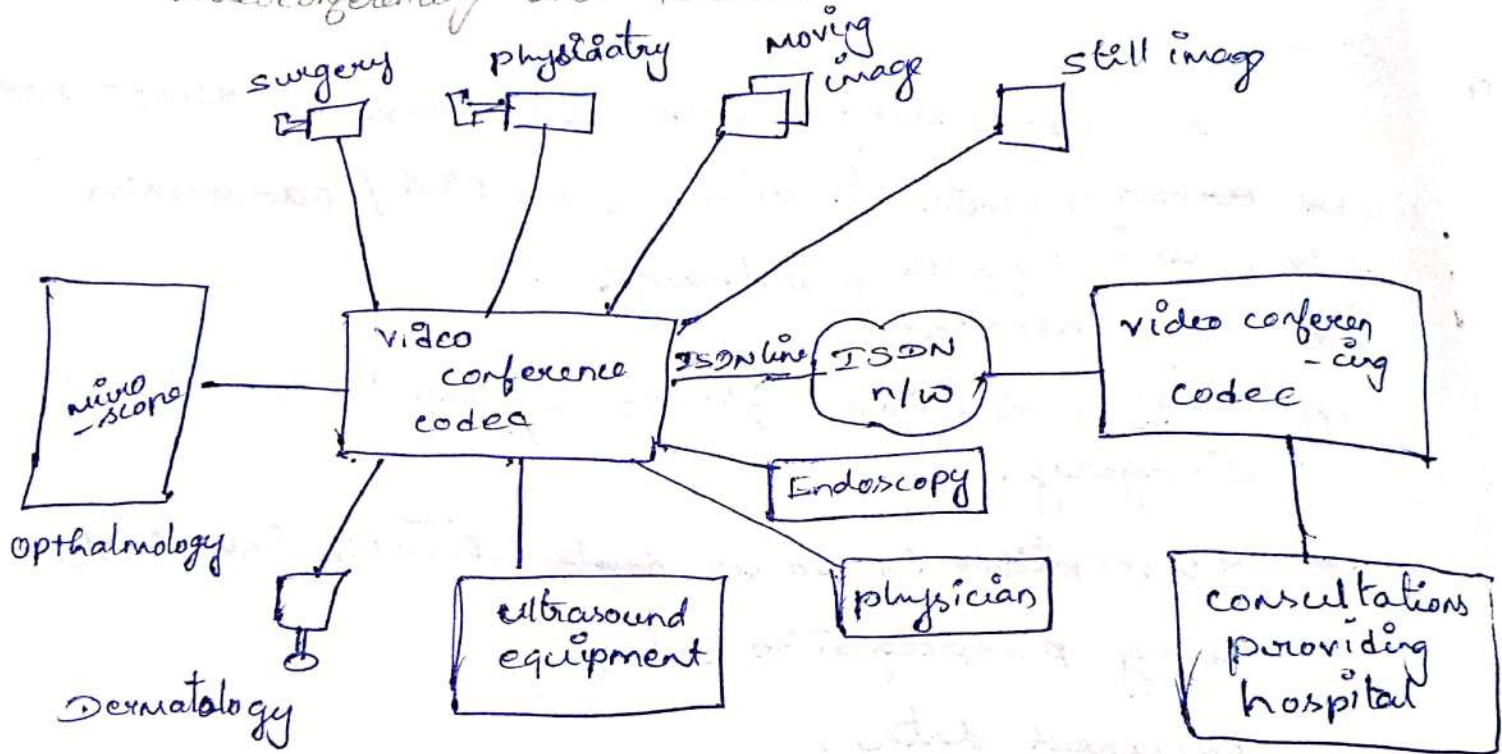 surgery
physiciatry
moving
image
still imag
micro
-scope
opthalmology
video
conference
codec
ISDN line
ISDN
n/w
video conferen
-cing
codec
Endoscopy
physician
ultrasound
equipment
Dermatology
consultations
providing
hospital